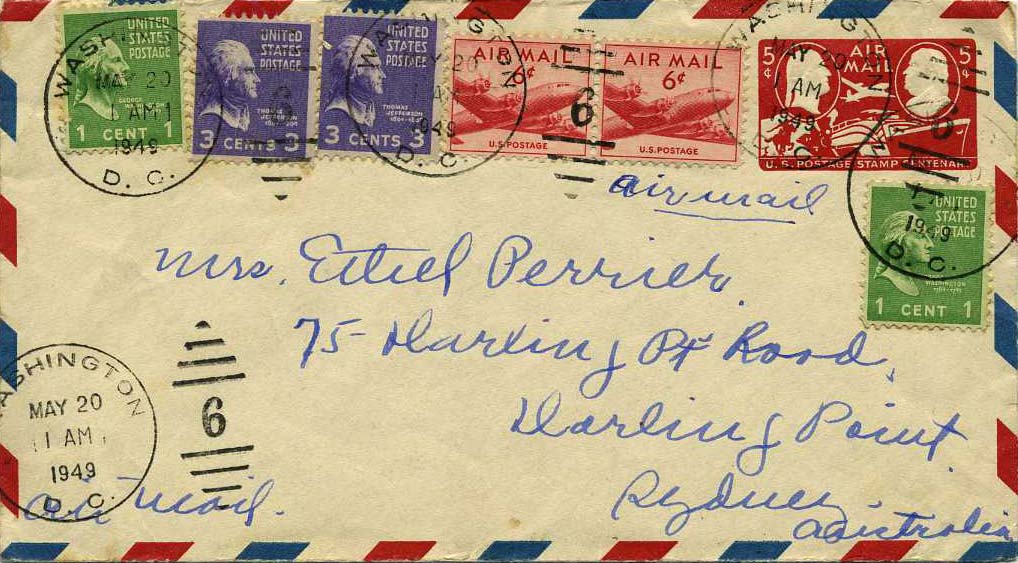 UNITED
STATES
POSTAGE
GEORGE
WASHINGTON
1 CENT 1
UNITED
STATES
POSTAGE
THOMAS
JEFFERSON
3 CENTS 3
UNITED
STATES
POSTAGE
THOMAS
JEFFERSON
3 CENTS 3
AIR MAIL
6¢
U.S. POSTAGE
AIR MAIL
6¢
U.S. POSTAGE
5¢ AIR MAIL 5¢
U.S. POSTAGE STAMP CENTENARY
WASHINGTON
MAY 20
1 AM
1949
D. C.
6
air mail
UNITED
STATES
POSTAGE
WASHINGTON
1 CENT 1
1949
D. C.
Mrs. Ethel Perrier
75 Darling Pt Road,
Darling Point
Sydney.
Australia
WASHINGTON
MAY 20
1 AM
1949
D. C.
6
air mail.